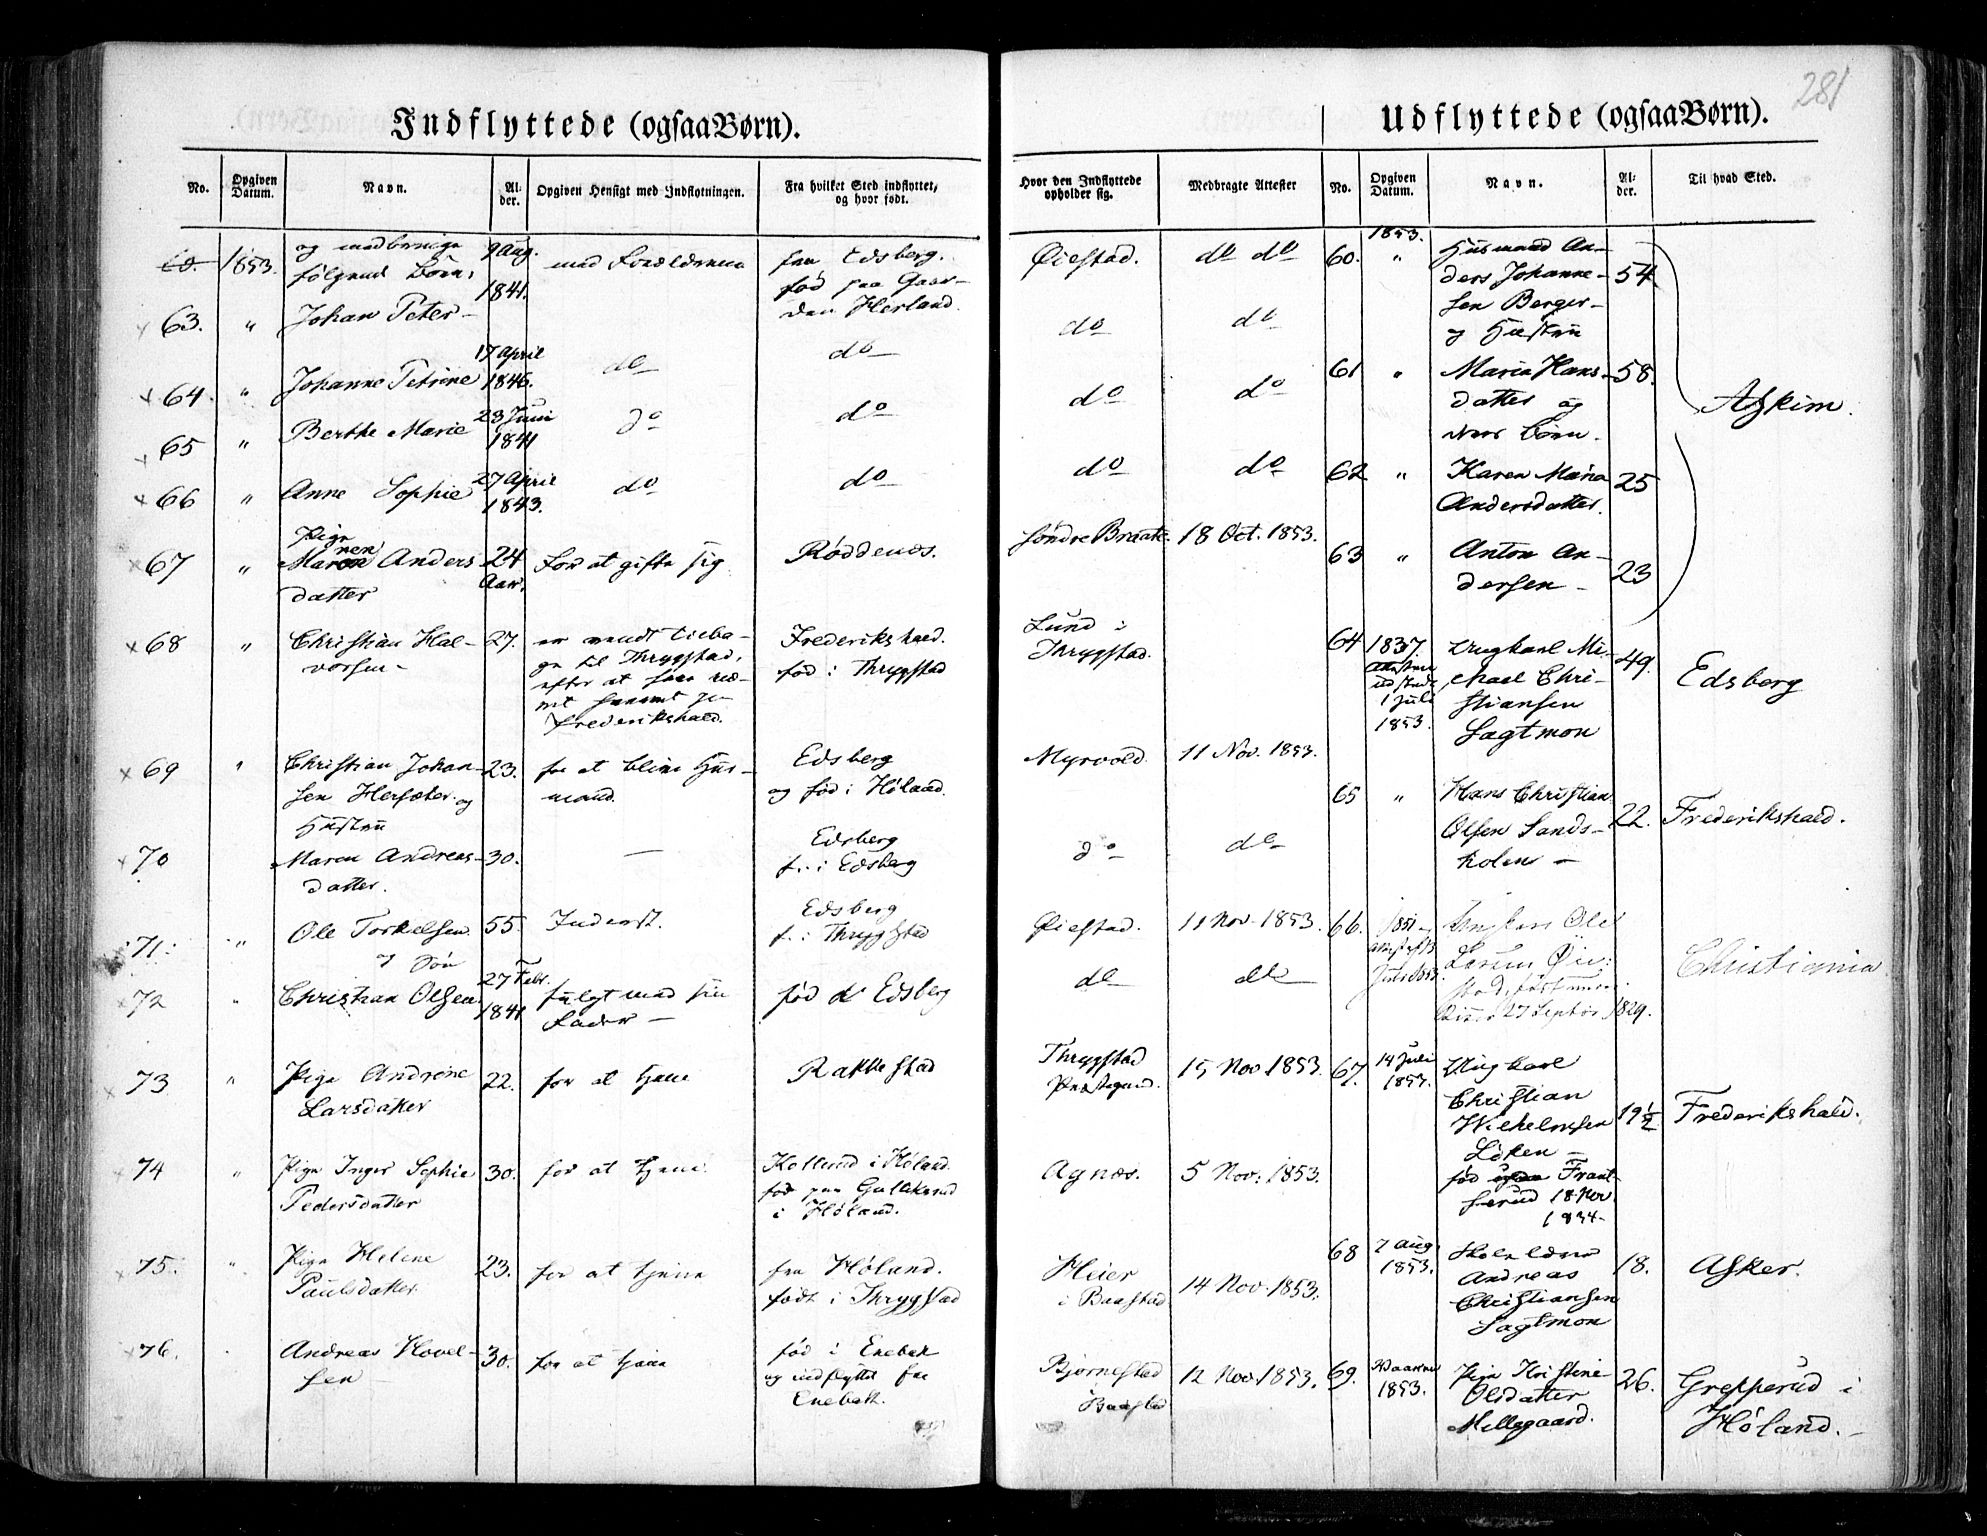 281
Indflyttede (ogsaa Børn).
No.
Opgiven Datum.
Navn.
Alder.
Opgiven Hensigt med Indflytningen.
Fra hvilket Sted indflyttet, og hvor født.
Hvor den Indflyttede opholder sig.
Medbragte Attester
1853.
følgende Børn,
9 Aug. 1841.
med Forældrene
fra Edsberg.
fød paa Gaarden Herland.
Øiestad.
do do
63. " Johan Peter
do
do
64. " Johanne Petrine
17 April 1846.
do
do
do
do
65 " Berthe Marie
23 Juni 1841
do
do
do
do
66 " Anne Sophie
27 April 1843.
do
do
67 " Pige Maren Anders
datter
24 Aar.
for at gifte sig
Røddenes.
Søndre Braate.
18 Oct. 1853.
68 " Christian Hal-
vorsen
27.
til Thrygstad,
efter at
Frederikshald.
Frederikshald.
fød i Thrygstad
Lund i
Thrygstad.
69 " Christian Johan-
sen Hersæter og
Hustru
23.
for at blive Hus-
mand.
Edsberg
og fød i Høland.
Myrvold.
11 Nov. 1853.
70 Maren Andreas-
datter.
30.
Edsberg
f. i Edsberg
do
do
71. " Ole Torkelsen
55.
Inderst.
Edsberg
f. i Thrygstad
Øiestad.
11 Nov. 1853.
72 " Christian Olsen
27 Febr. 1841
fulgt med sin
Fader
fød i Edsberg
do
do
73 " Pige Andrine
Larsdatter
22.
for at tjene
Rakkestad
Thrygstad
Præstegaard.
15 Nov 1853.
74 " Pige Inger Sophie
Pedersdatter
30.
for at tjene
i Høland.
fød paa Gullikerud
i Høland.
Agnæs.
5 Nov: 1853.
75. " Pige Helene
Paulsdatter.
23.
for at tjene
fra Høland.
født i Thrygstad
Heier
i Baastad
14 Nov. 1853.
76. Andreas Hovel-
sen
30.
for at tjene
fød i Enebak
og indflyttet fra
Enebak.
Bjørnestad
Baastad
12 Nov. 1853.
Udflyttede (ogsaa Børn).
No.
Opgiven Datum.
Navn.
Alder.
Til hvad Sted.
1853.
60. " Husmand An-
ders Johanne-
sen Berger
og Hustru
54
61 " Maria Hans-
datter og
deres Børn.
58.
Askim.
62 " Karen Maria
Andersdatter.
25
63 " Anton An-
dersen
23
64 1837.
1 Juli
1853.
Ungkarl Mi-
chael Chri-
stiansen
Sagtmon
49.
Edsberg
65 " Hans Christian
Olsen Sands-
kolen
22.
Frederikshald.
66. 1851
Ungkarl Ole
27 Septbr 1829.
Christiania
67. 14 Juli
1853.
Ungkarl
Christian
Wilhelmsen
Løken
fød
18 Nov
1834.
19 1/2
Frederikshald.
68 7 Aug.
1853.
Skolelærer
Andreas
Christiansen
Sagtmon
18.
Asker.
69.
1853.
Pige Kristine
Olsdatter
Millegaard.
26.
Grepperud i
Høland.